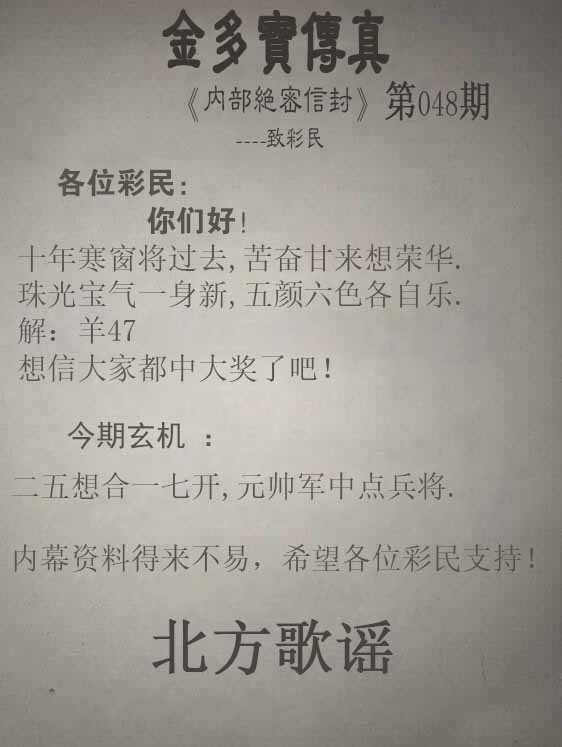 金多寶傳真
《内部絶密信封》第048期
----致彩民
各位彩民:
你们好!
十年寒窗将过去,苦奋甘来想荣华.
珠光宝气一身新,五颜六色各自乐.
解：羊47
想信大家都中大奖了吧!
今期玄机 ：
二五想合一七开,元帅军中点兵将.
内幕资料得来不易，希望各位彩民支持!
北方歌谣